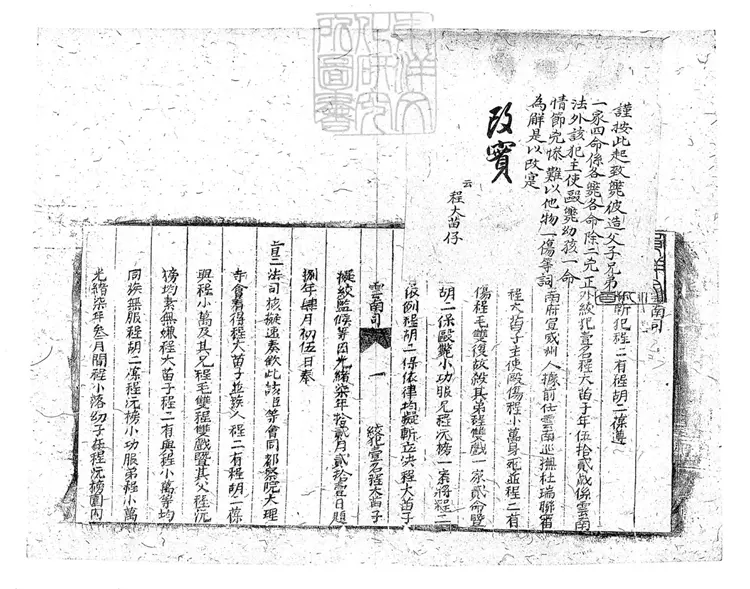 東洋文
化研究
所圖書
謹按此起致斃彼造父子兄弟
一家四命係各斃各命除二兇正
法外該犯主使毆斃幼孩一命
情節兇慘難以他物一傷等詞
為辭是以改寔
改實
云
程大苗仔
南司
斬犯程二有程胡二保
外絞犯壹名程大苗子年伍拾貳歲係雲南
南府宣威州人據前任雲南巡撫杜瑞聯審
程大苗子主使毆傷程小萬身死並程二有
傷程毛雙復故殺其弟程雙戲一家貳命暨
胡二保毆斃小功服兄程沅榜一案將程二
依例程胡二保依律均擬斬立決程大苗子
雲南司 一 絞犯壹名程大苗子
擬絞監候等因光緒柒年拾貳月貳拾壹日題
捌年肆月初伍日奉
旨三法司核擬速奏欽此該臣等會同都察院大理
寺會看得程大苗子並族人程二有程胡二保
與程小萬及其兄程毛雙程雙戲暨其父程沅
榜均素無嫌程大苗子程二有與程小萬等均
同族無服程胡二保程沅榜小功服弟程小萬
光緒柒年叁月間程小落幼子在程沅榜園內